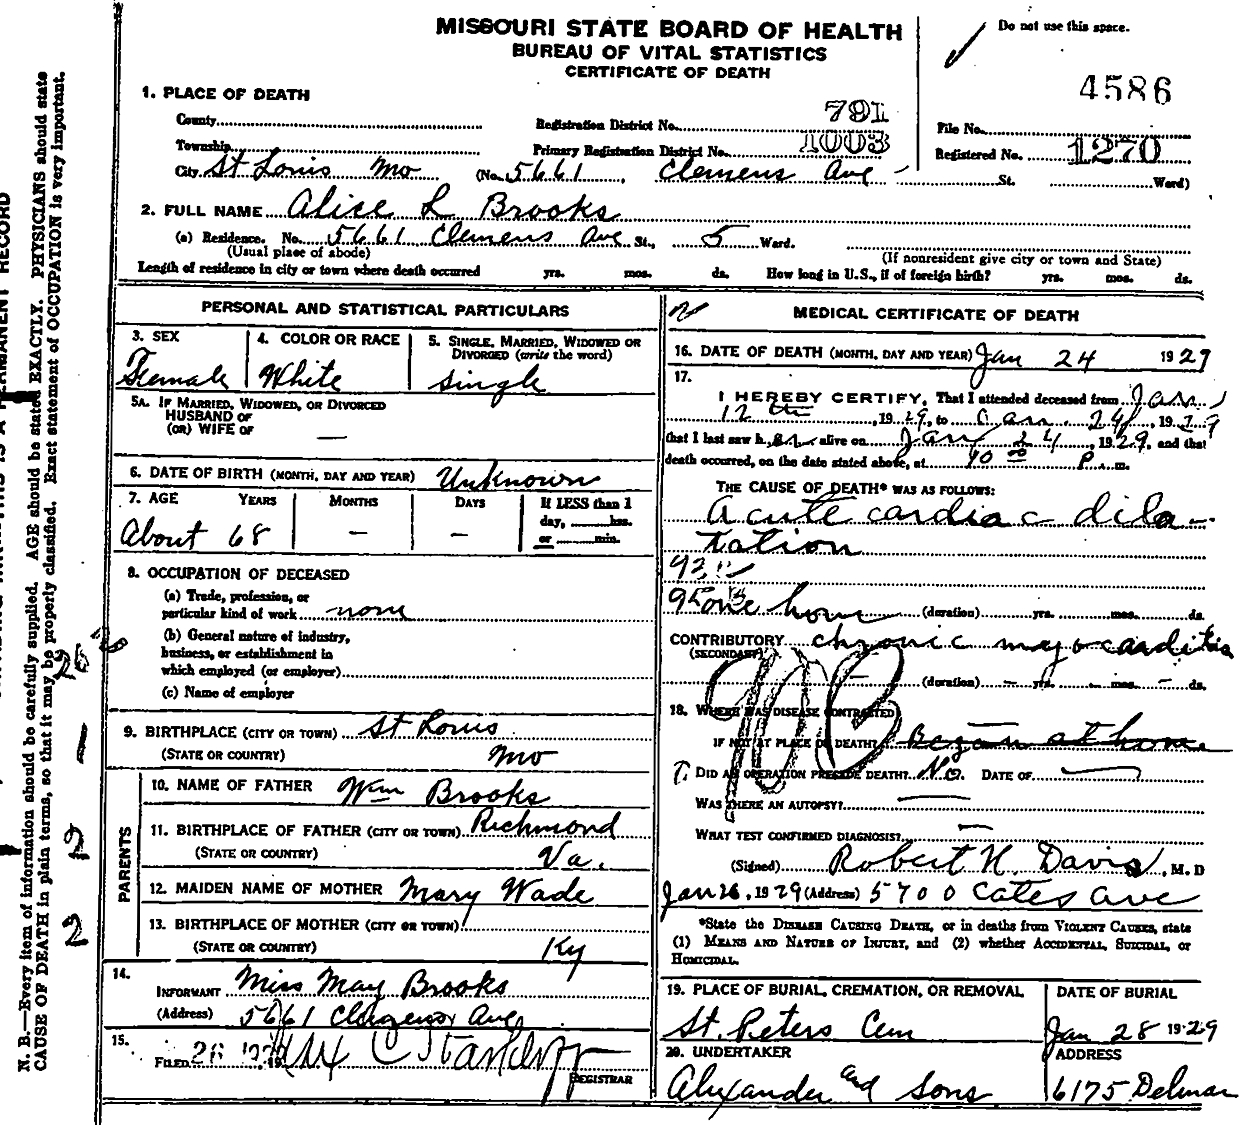 MISSOURI STATE BOARD OF HEALTH
BUREAU OF VITAL STATISTICS
CERTIFICATE OF DEATH
Do not use this space.
4586
1. PLACE OF DEATH
County
Registration District No. 791
File No.
Township
Primary Registration District No. 1003
Registered No. 1270
City St Louis Mo (No. 5661, Clemens Ave St. Ward)
2. FULL NAME Alice L Brooks
(a) Residence. No. 5661 Clemens Ave St., 5 Ward.
(Usual place of abode) (If nonresident give city or town and State)
Length of residence in city or town where death occurred yrs. mos. ds. How long in U.S., if of foreign birth? yrs. mos. ds.
PERSONAL AND STATISTICAL PARTICULARS
3. SEX
Female
4. COLOR OR RACE
White
5. SINGLE, MARRIED, WIDOWED OR
DIVORCED (write the word)
Single
5A. IF MARRIED, WIDOWED, OR DIVORCED
HUSBAND OF
(OR) WIFE OF —
6. DATE OF BIRTH (MONTH, DAY AND YEAR) Unknown
7. AGE YEARS MONTHS DAYS
If LESS than 1
day, hrs.
or min.
About 68 — —
8. OCCUPATION OF DECEASED
(a) Trade, profession, or
particular kind of work none
(b) General nature of industry,
business, or establishment in
which employed (or employer)
(c) Name of employer
9. BIRTHPLACE (CITY OR TOWN) St Louis
(STATE OR COUNTRY) Mo
PARENTS
10. NAME OF FATHER Wm Brooks
11. BIRTHPLACE OF FATHER (CITY OR TOWN) Richmond
(STATE OR COUNTRY) Va.
12. MAIDEN NAME OF MOTHER Mary Wade
13. BIRTHPLACE OF MOTHER (CITY OR TOWN)
(STATE OR COUNTRY) Ky
14.
INFORMANT Miss May Brooks
(Address) 5661 Clemens Ave
15.
FILED 26 1929
REGISTRAR
MEDICAL CERTIFICATE OF DEATH
16. DATE OF DEATH (MONTH, DAY AND YEAR) Jan 24 1929
17.
I HEREBY CERTIFY, That I attended deceased from Jan
12th, 1929, to Jan. 24, 1929
that I last saw her alive on Jan 24, 1929, and that
death occurred, on the date stated above, at 10 00 P. m.
THE CAUSE OF DEATH* WAS AS FOLLOWS:
Acute cardiac dila-
tation
one hour (duration) yrs. mos. ds.
CONTRIBUTORY chronic myocarditis
(SECONDARY)
(duration) — yrs. — mos. — ds.
18. WHERE WAS DISEASE CONTRACTED
IF NOT AT PLACE OF DEATH? Began at home
DID AN OPERATION PRECEDE DEATH? No. DATE OF —
WAS THERE AN AUTOPSY? —
WHAT TEST CONFIRMED DIAGNOSIS? —
(Signed) Robert H. Davis, M. D
Jan 26, 1929 (Address) 5700 Cates Ave
*State the DISEASE CAUSING DEATH, or in deaths from VIOLENT CAUSES, state
(1) MEANS AND NATURE OF INJURY, and (2) whether ACCIDENTAL, SUICIDAL, or
HOMICIDAL.
19. PLACE OF BURIAL, CREMATION, OR REMOVAL
St. Peters Cem
DATE OF BURIAL
Jan 28 1929
20. UNDERTAKER
Alexander and Sons
ADDRESS
6175 Delmar
N. B.—Every item of information should be carefully supplied. AGE should be stated EXACTLY. PHYSICIANS should state
CAUSE OF DEATH in plain terms, so that it may be properly classified. Exact statement of OCCUPATION is very important.